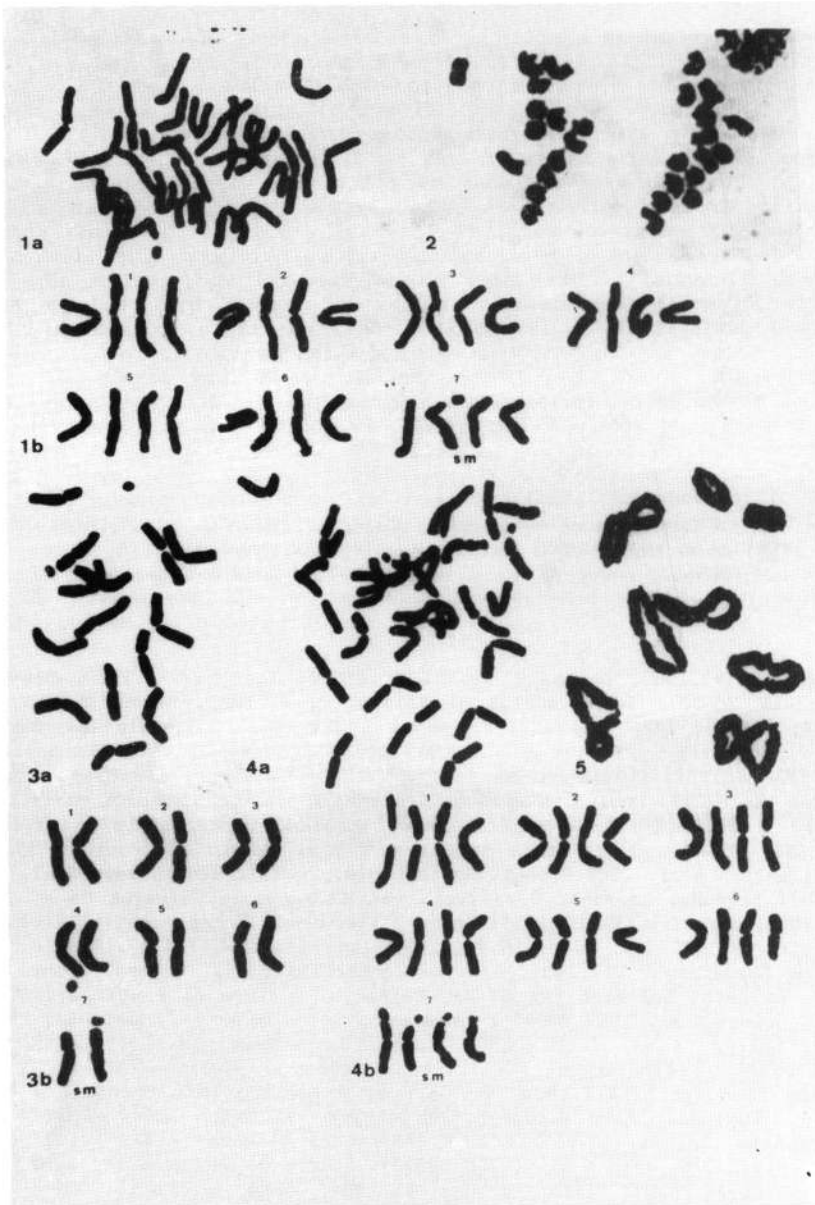 1a 2
1 2 3 4
1b 5 6 7
sm
3a 4a 5
1 2 3 1 2 3
4 5 6 4 5 6
7 7
3b sm 4b sm